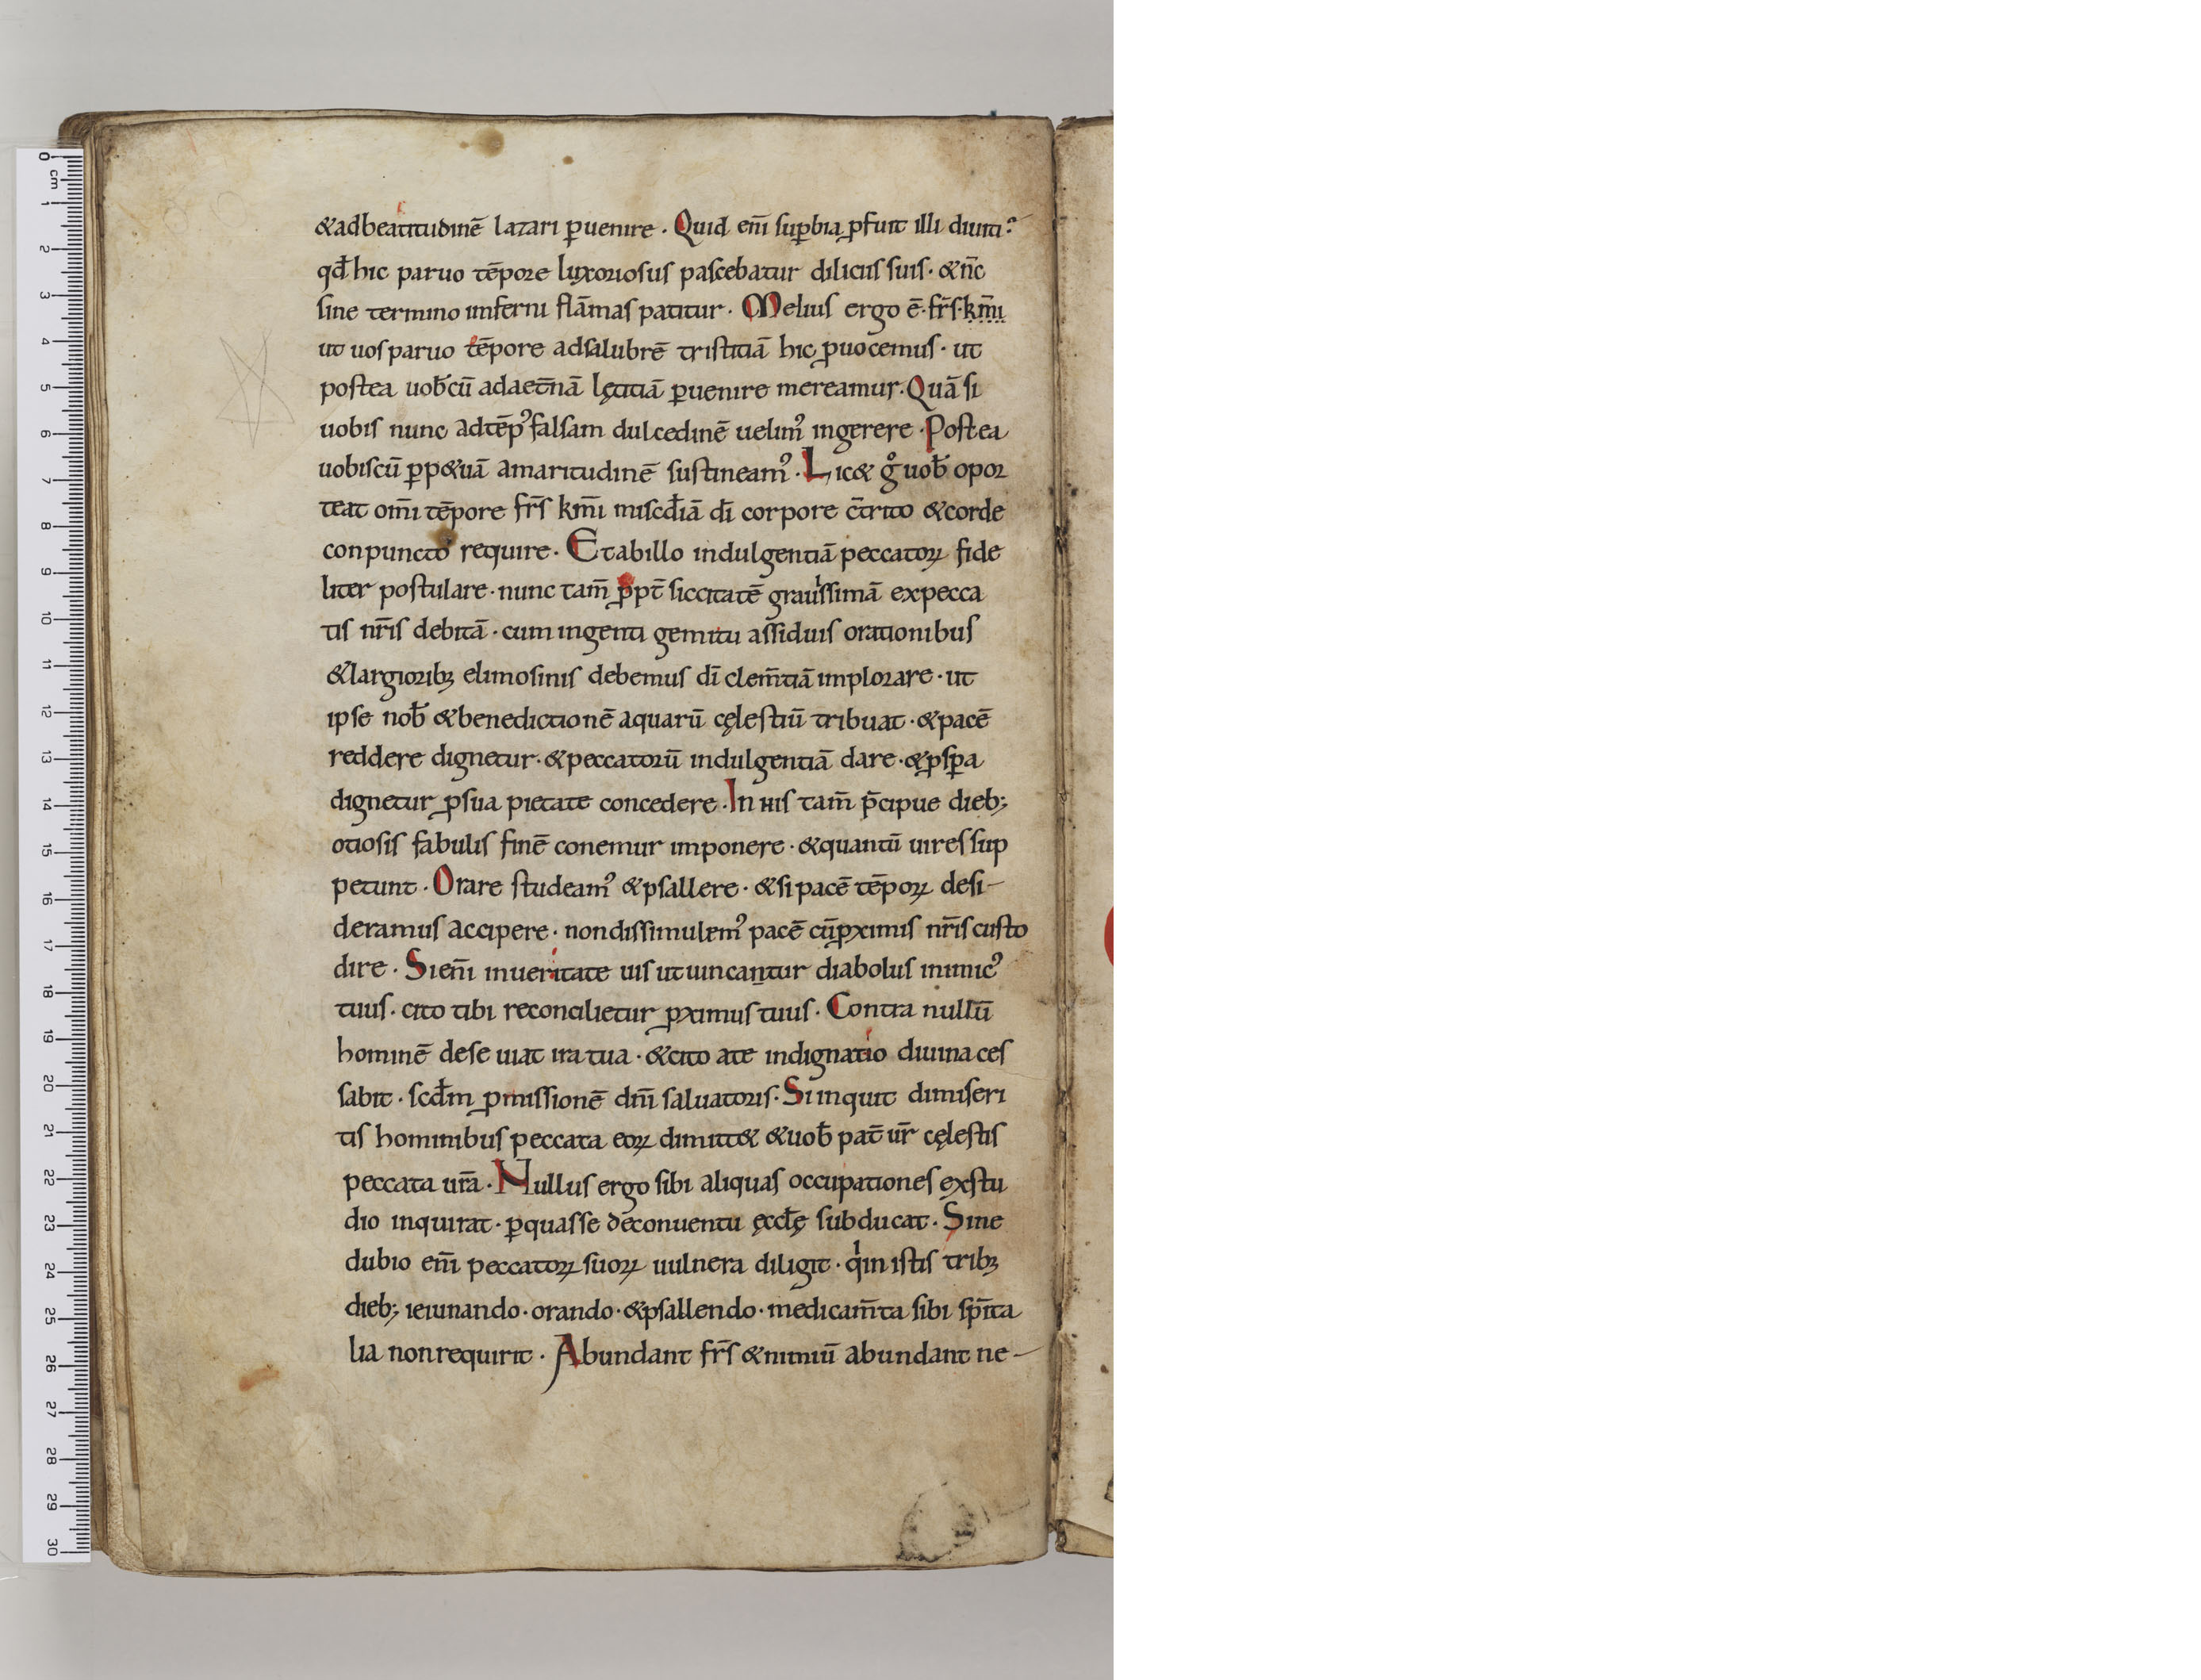 &adbeatitudinē lazari ꝑuenire · Quid enī suꝑbia ꝓfuit illi diuiti?
qđ hic paruo tēpore luxoriosus pascebatur diliciis suis · & nc̄
sine termino imferni flāmas patitur · Melius ergo ē · frs̄ · km̄i
ut uos paruo tēpore adsalubrē tristitiā hic ꝓuocemus · ut
postea uob̄cū adaet̄nā lętitiā ꝑuenire mereamur · Quā si
uobis nunc adtēpꝰ falsam dulcedinē uelimꝰ ingerere · Postea
uobiscū ꝑp&uā amaritudinē sustineamꝰ · Lic& gͦ uob̄ opor
teat om̄i tēpore frs̄ km̄i miscd̄iā dī corpore c̄trito &corde
conpuncto require · Etabillo indulgentiā peccatoꝝ fide
liter postulare · nunc tam̄ ꝓpt̄ siccitatē grauissimā expecca
tis nr̄is debitā · cum ingenti gemitu assiduis orationibus
&largioribꝫ elimosinis debemus dī clem̄tiā implorare · ut
ipse nob̄ &benedictionē aquarū cęlestiū tribuat · &pacē
reddere dignetur · &peccatorū indulgentiā dare · &ꝓsꝑa
dignetur ꝓsua pietate concedere · In his tam̄ p̄cipue dieb;
otiosis fabulis finē conemur imponere · &quantū uires sup
petunt · Orare studeamꝰ &psallere · &si pacē tēpoꝝ desi-
deramus accipere · nondissimulemꝰ pacē cū ꝓximis nr̄is custo
dire · Si enī inueritate uis ut uincantur diabolus inimicꝰ
tuus · cito tibi reconcilietur ꝓximus tuus · Contra nullū
hominē dese uiat ira tua · &cito ate indignatio diuina ces
sabit · scd̄m ꝓmissionē dn̄i saluatoris · Si inquit dimiseri
tis hominibus peccata eoꝝ dimitt& &uob̄ pat̄ ur̄ cęlestis
peccata ur̄a · Nullus ergo sibi aliquas occupationes exstu
dio inquirat · ꝑquasse deconuentu ęccl̄ę subducat · Sine
dubio enī peccatoꝝ suoꝝ uulnera diligit · qͥ in istis tribꝫ
dieb; ieiunando · orando · &psallendo · medicam̄ta sibi spīta
lia nonrequirit · Abundant frs̄ &nimiū abundant ne-